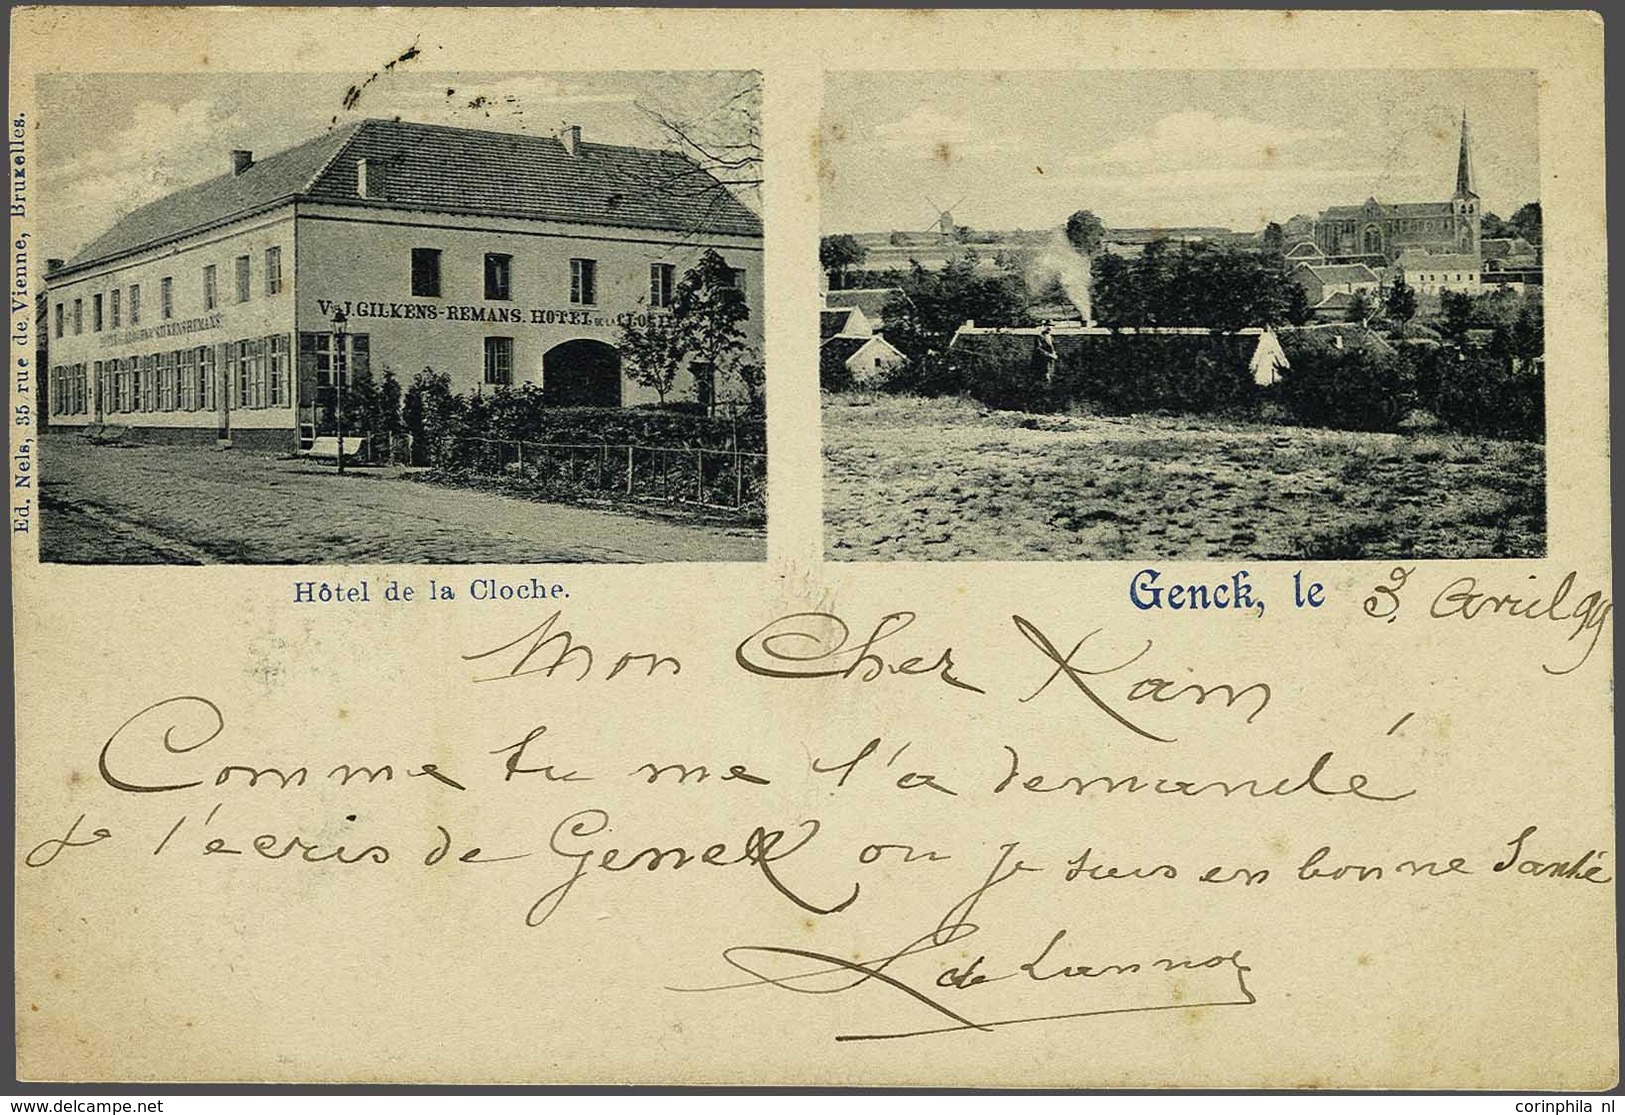 Ed. Nels, 35 rue de Vienne, Bruxelles.
Vve J. GILKENS-REMANS. HOTEL DE LA CLOCHE
GILKENS REMANS
Hôtel de la Cloche.
Genck, le 3. Avril 99
Mon Cher Xam
Comme tu me l'a demandé,
Je t'ecris de Genck ou je suis en bonne Santé
L de Lannoy
www.delcampe.net
corinphila nl